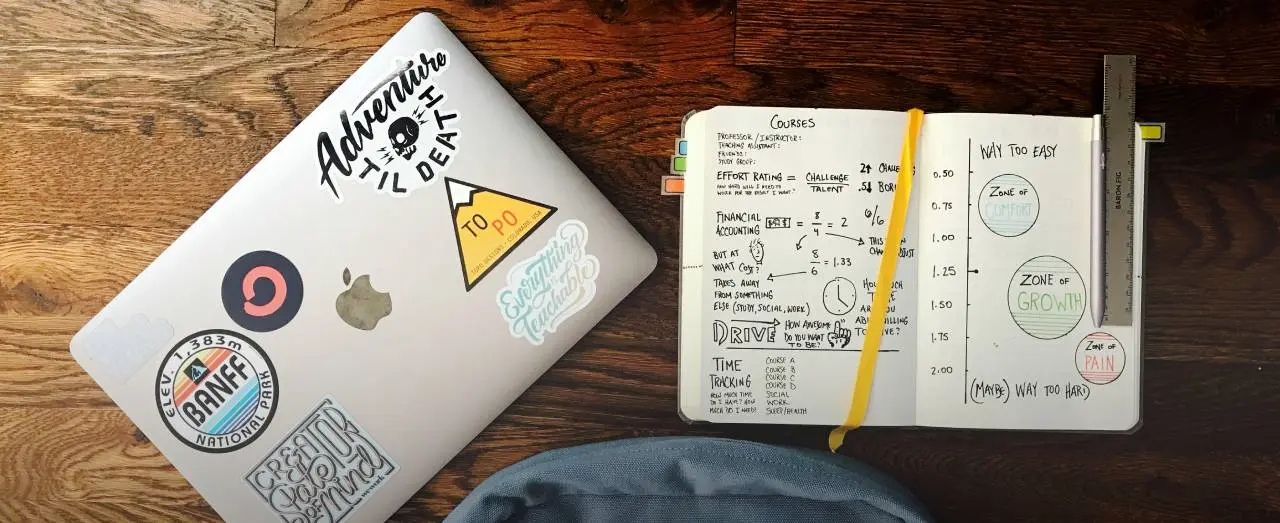 Adventure
TIL DEATH
TO PO
TOPO DESIGNS - COLORADO, USA
Everything
is
Teachable
ELEV. 1,383m
BANFF
NATIONAL PARK
CREATOR
State
of Mind
COURSES
PROFESSOR / INSTRUCTOR:
TEACHING ASSISTANT:
FRIENDS:
STUDY GROUP:
EFFORT RATING = CHALLENGE
TALENT
HOW HARD WILL I NEED TO
WORK FOR THE RESULT I WANT?
2↑
.5↓
FINANCIAL
ACCOUNTING = 8/4 = 2
6/6
THIS
BUT AT
WHAT COST?
8/6 = 1.33
TAKES AWAY
FROM SOMETHING
ELSE (STUDY, SOCIAL, WORK)
DRIVE
HOW AWESOME
DO YOU WANT
TO BE?
TIME
TRACKING
HOW MUCH TIME
DO I HAVE? HOW
MUCH DO I NEED?
COURSE A
COURSE B
COURSE C
COURSE D
SOCIAL
WORK
SLEEP/HEALTH
WAY TOO EASY
0.50
0.75
1.00
1.25
1.50
1.75
2.00
ZONE OF
COMFORT
ZONE OF
GROWTH
ZONE OF
PAIN
(MAYBE) WAY TOO HARD
BARON FIG